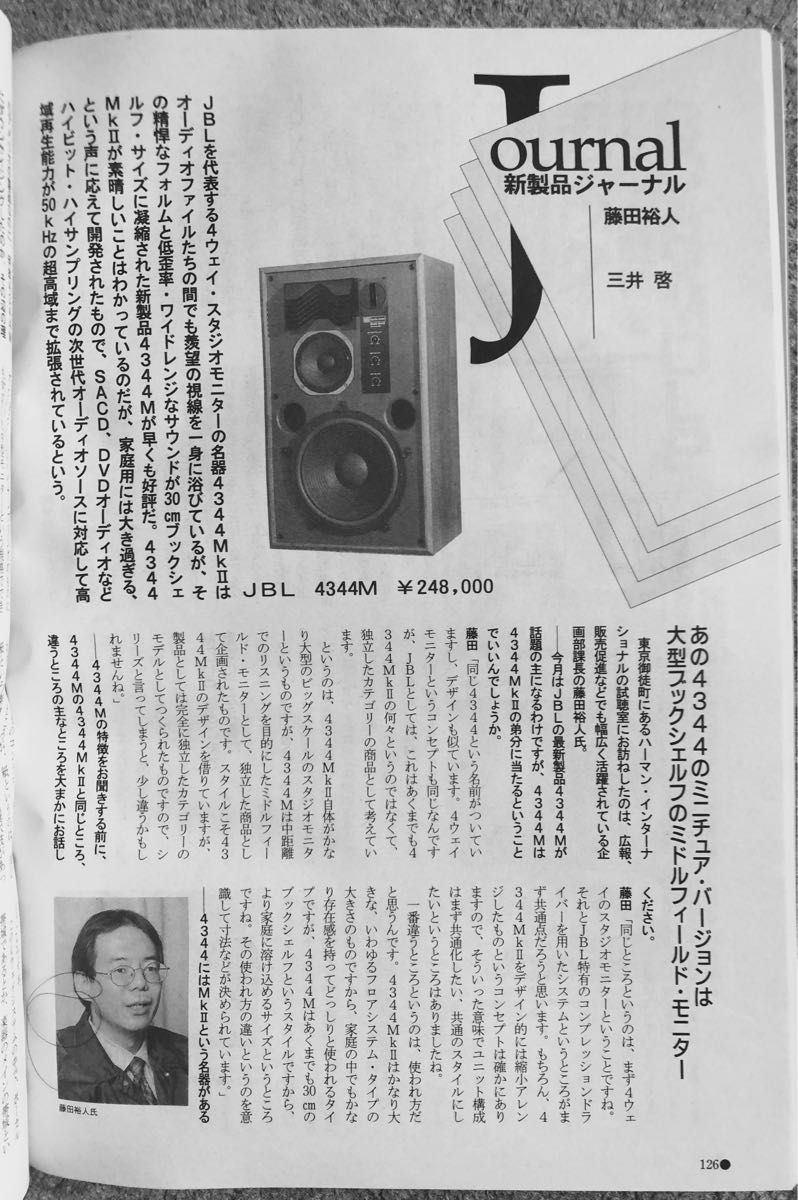 Journal
新製品ジャーナル
藤田裕人
三井 啓
JBLを代表する4ウェイ・スタジオモニターの名器4344MkⅡは
オーディオファイルたちの間でも羨望の視線を一身に浴びているが、そ
の精悍なフォルムと低歪率・ワイドレンジなサウンドが30㎝ブックシェ
ルフ・サイズに凝縮された新製品4344Mが早くも好評だ。4344
MkⅡが素晴しいことはわかっているのだが、家庭用には大き過ぎる、
という声に応えて開発されたもので、SACD、DVDオーディオなど
ハイビット・ハイサンプリングの次世代オーディオソースに対応して高
域再生能力が50kHzの超高域まで拡張されているという。
JBL 4344M ¥248,000
あの4344のミニチュア・バージョンは
大型ブックシェルフのミドルフィールド・モニター
東京御徒町にあるハーマン・インターナ
ショナルの試聴室にお訪ねしたのは、広報、
販売促進などでも幅広く活躍されている企
画部課長の藤田裕人氏。
――今月はJBLの最新製品4344Mが
話題の主になるわけですが、4344Mは
4344MkⅡの弟分に当たるということ
でいいんでしょうか。
藤田「同じ4344という名前がついてい
ますし、デザインも似ています。4ウェイ
モニターというコンセプトも同じなんです
が、JBLとしては、これはあくまでも4
344MkⅡの何々というのではなくて、
独立したカテゴリーの商品として考えてい
ます。
というのは、4344MkⅡ自体がかな
り大型のビッグスケールのスタジオモニタ
ーというものですが、4344Mは中距離
でのリスニングを目的にしたミドルフィー
ルド・モニターとして、独立した商品とし
て企画されたものです。スタイルこそ43
44MkⅡのデザインを借りていますが、
製品としては完全に独立したカテゴリーの
モデルとしてつくられたものですので、シ
リーズと言ってしまうと、少し違うかもし
れませんね。」
――4344Mの特徴をお聞きする前に、
4344Mの4344MkⅡと同じところ、
違うところの主なところを大まかにお話し
ください。
藤田「同じところというのは、まず4ウェ
イのスタジオモニターということですね。
それとJBL特有のコンプレッションドラ
イバーを用いたシステムというところがま
ず共通点だろうと思います。もちろん、4
344MkⅡをデザイン的には縮小アレン
ジしたものというコンセプトは確かにあり
ますので、そういった意味でユニット構成
はまず共通化したい、共通のスタイルにし
たいというところはありましたね。
一番違うところというのは、使われ方だ
と思うんです。4344MkⅡはかなり大
きな、いわゆるフロアシステム・タイプの
大きさのものですから、家庭の中でもかな
り存在感を持ってどっしりと使われるタイ
プですが、4344Mはあくまでも30㎝の
ブックシェルフというスタイルですから、
より家庭に溶け込めるサイズというところ
ですね。その使われ方の違いというのを意
識して寸法などが決められています。」
――4344にはMkⅡという名器がある
藤田裕人氏
126●